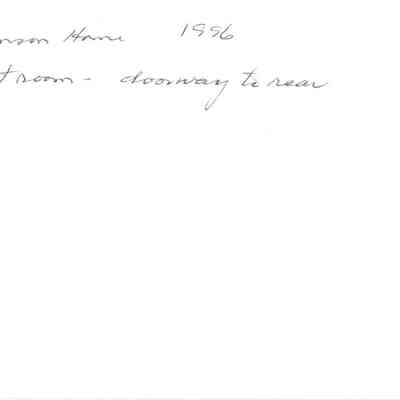 nson Home 1996
t room - doorway to rear